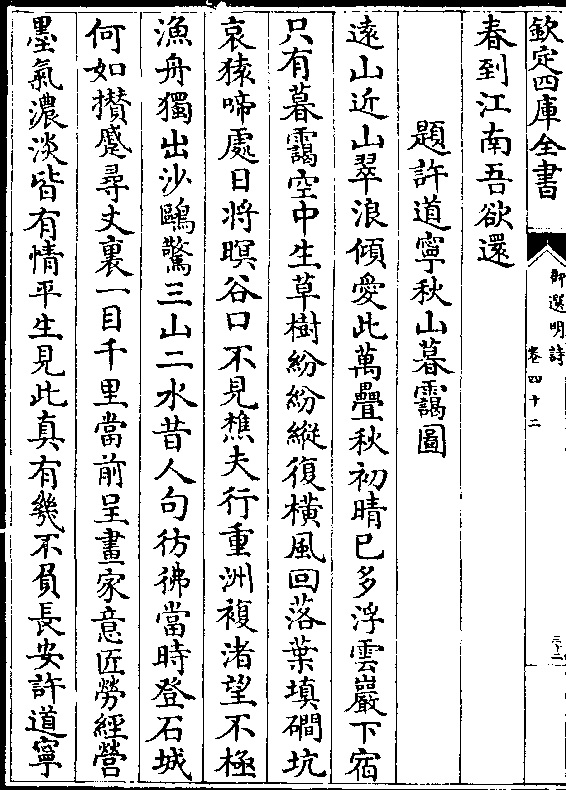 欽定四庫全書
御選明詩
卷四十二
三十二
春到江南吾欲還
題許道寧秋山暮靄圖
遠山近山翠浪傾愛此萬疊秋初晴已多浮雲巖下宿
只有暮靄空中生草樹紛紛縱復橫風回落葉填磵坑
哀猿啼處日將暝谷口不見樵夫行重洲複渚望不極
漁舟獨出沙鷗驚三山二水昔人句彷彿當時登石城
何如攅蹙尋丈裏一目千里當前呈畫家意匠勞經營
墨氣濃淡皆有情平生見此真有幾不負長安許道寧